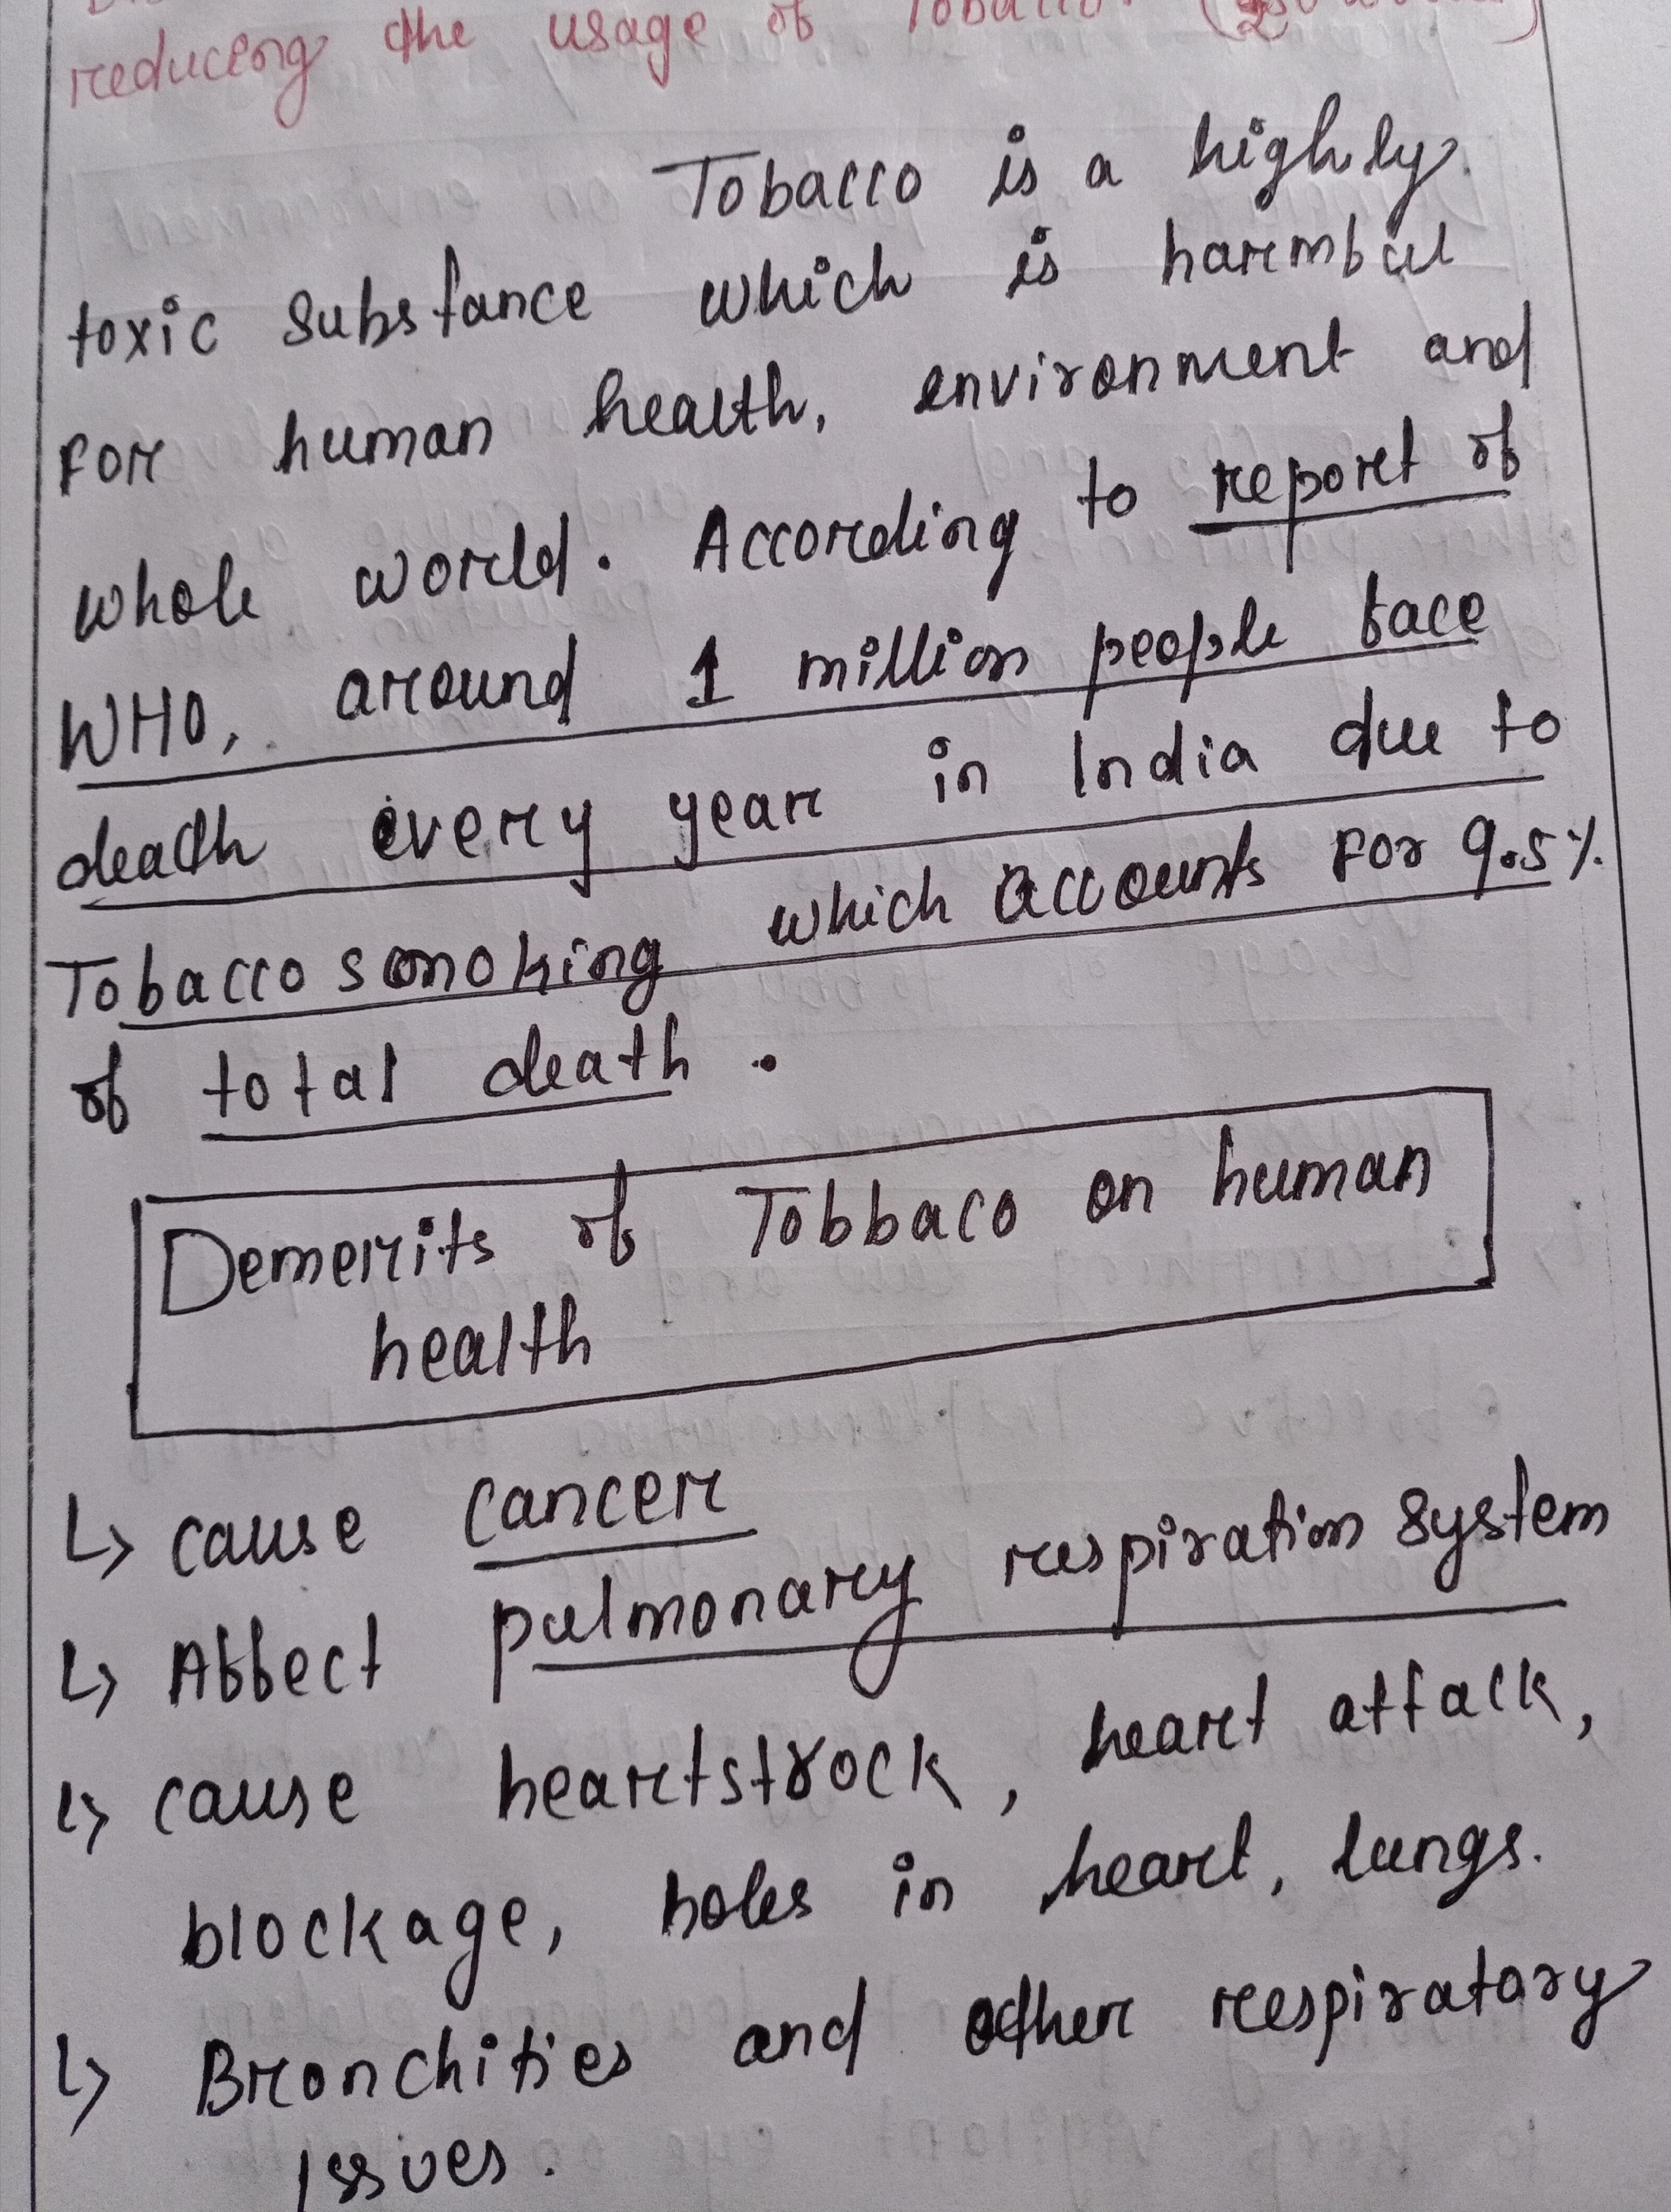 reducing the usage of Tobacco. (
Tobacco is a highly
toxic substance which is harmful
For human health, environment and
whole world. According to report of
WHO, around 1 million people face
death every year in India due to
Tobacco smoking which accounts For 9.5%
of total death.
Demerits of Tobbaco on human
health
↳ cause cancer
↳ Affect pulmonary respiration system
↳ cause heartstrock, heart attack,
blockage, holes in heart, lungs.
↳ Bronchities and other respiratory
Issues.